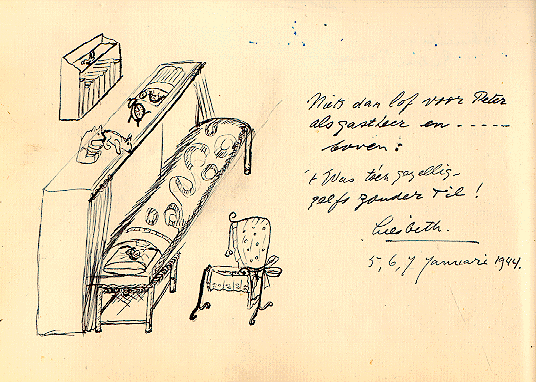 Niets dan lof voor Peter
als gastheer en -----
boven:
't Was toen gezellig-
zelfs zonder Til!
Liesbeth.
5, 6, 7 Januarie 1944.